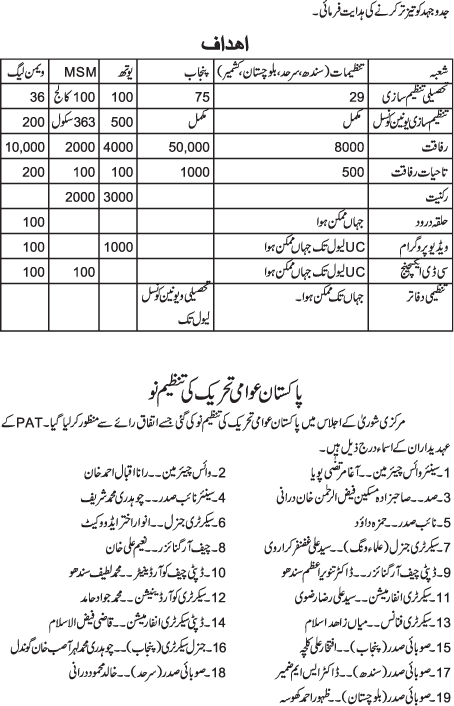 جدوجہد کو تیز تر کرنے کی ہدایت فرمائی۔
اھداف
شعبہ تنظیمات (سندھ، سرحد، بلوچستان، کشمیر) پنجاب یوتھ MSM ویمن لیگ
تحصیلی تنظیم سازی 29 75 100 100 کالج 36
تنظیم سازی یونین کونسل مکمل مکمل 500 363 سکول 200
رفاقت 8000 50,000 4000 2000 10,000
تاحیات رفاقت 500 1000 100 100 200
رکنیت 3000 2000
حلقہ درود جہاں ممکن ہوا 100
ویڈیو پروگرام UC لیول تک جہاں ممکن ہوا 1000 100
سی ڈی ایکسچینج UC لیول تک جہاں ممکن ہوا 100 100
تنظیمی دفاتر جہاں تک ممکن ہوا۔ تحصیلی و یونین کونسل
لیول تک
پاکستان عوامی تحریک کی تنظیم نو
مرکزی شوریٰ کے اجلاس میں پاکستان عوامی تحریک کی تنظیم نو کی گئی جسے اتفاق رائے سے منظور کر لیا گیا۔ PAT کے
عہدیداران کے اسماء درج ذیل ہیں۔
1۔ سینئر وائس چیئرمین۔۔ آغا مرتضیٰ پویا 2۔ وائس چیئرمین۔۔ رانا اقبال احمد خان
3۔ صدر۔۔ صاحبزادہ مسکین فیض الرحمٰن خان درانی 4۔ سینئر نائب صدر۔۔ چوہدری محمد شریف
5۔ نائب صدر۔۔ حمزہ داؤد 6۔ سیکرٹری جنرل۔۔ انوار اختر ایڈووکیٹ
7۔ سیکرٹری جنرل (علماء ونگ)۔۔ سید علی غضنفر کراروی 8۔ چیف آرگنائزر۔۔ نعیم علی خان
9۔ ڈپٹی چیف آرگنائزر۔۔ ڈاکٹر تنویر اعظم سندھو 10۔ ڈپٹی چیف کوآرڈینیٹر۔۔ محمد لطیف سندھو
11۔ سیکرٹری انفارمیشن۔۔ سید علی رضا رضوی 12۔ سیکرٹری کوآرڈینیشن۔۔ محمد جواد حامد
13۔ سیکرٹری فنانس۔۔ میاں زاھد اسلام 14۔ ڈپٹی سیکرٹری انفارمیشن۔۔ قاضی فیض الاسلام
15۔ صوبائی صدر (پنجاب)۔۔ افتخار علی کلچہ 16۔ جنرل سیکرٹری (پنجاب)۔۔ چوہدری محمد آصف خان گوندل
17۔ صوبائی صدر (سندھ)۔۔ ڈاکٹر ایس ایم ضمیر 18۔ صوبائی صدر (سرحد)۔۔ خالد محمود درانی
19۔ صوبائی صدر (بلوچستان)۔۔ ظہور احمد کھوسہ